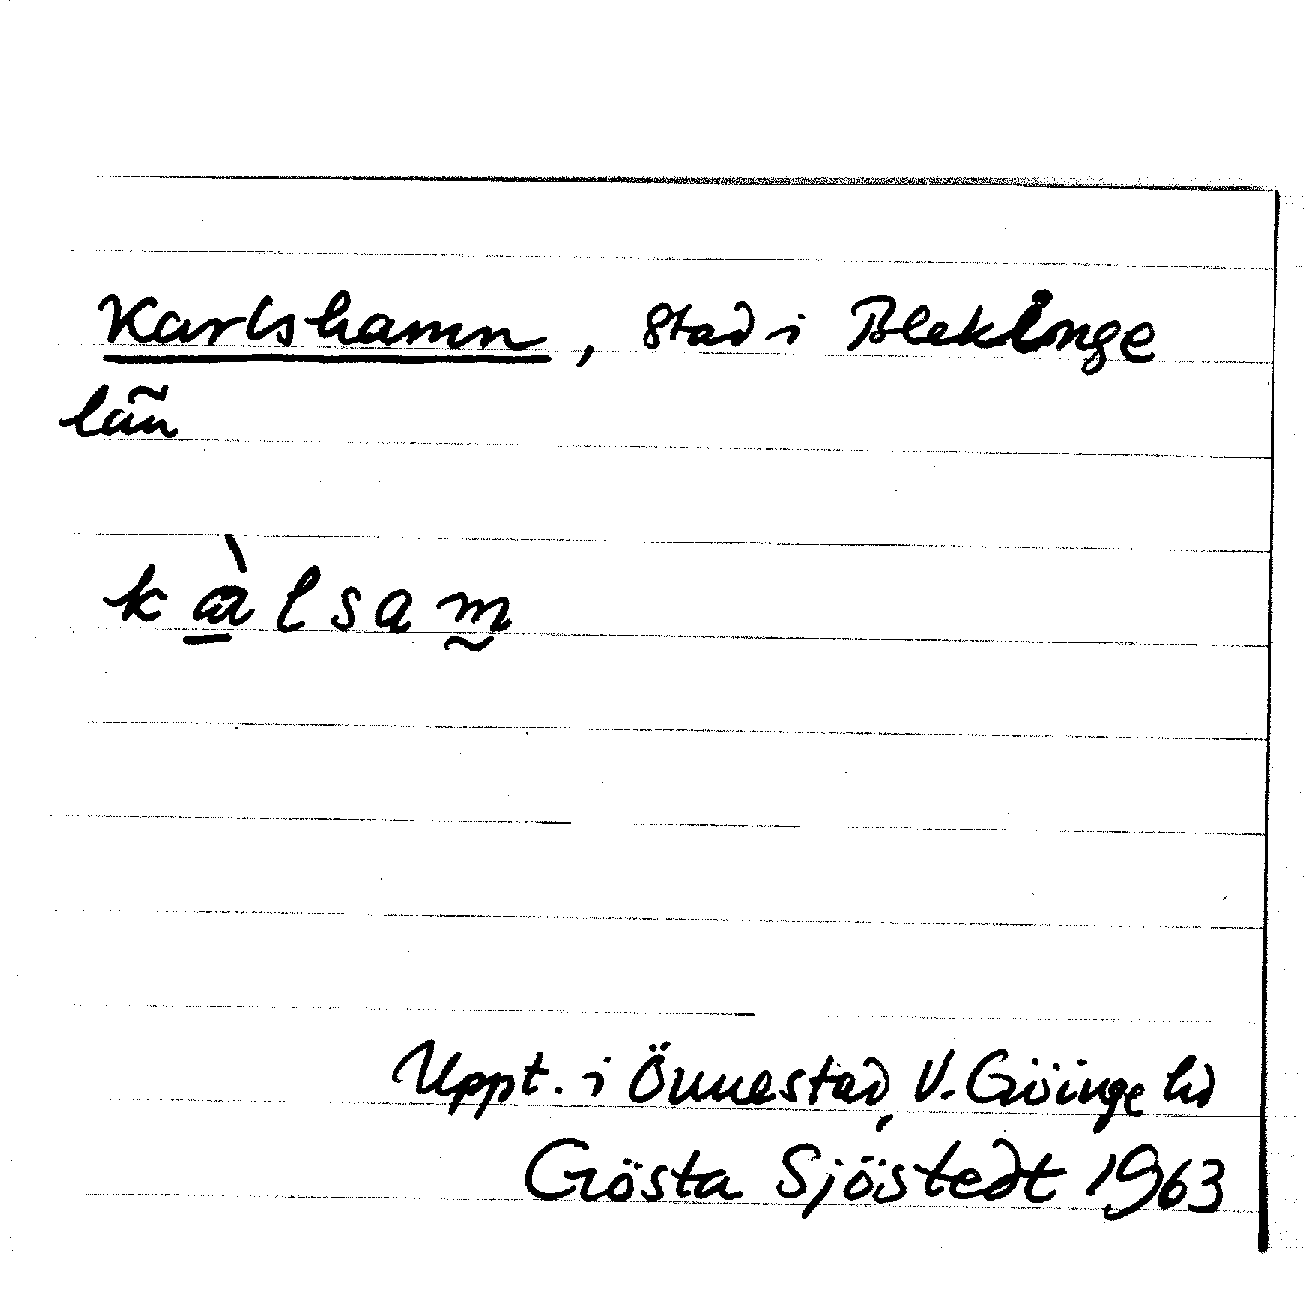 Karlshamn, stad i Blekinge
län
kàlsam
Uppt. i Önnestad, V. Göinge hd
Gösta Sjöstedt 1963